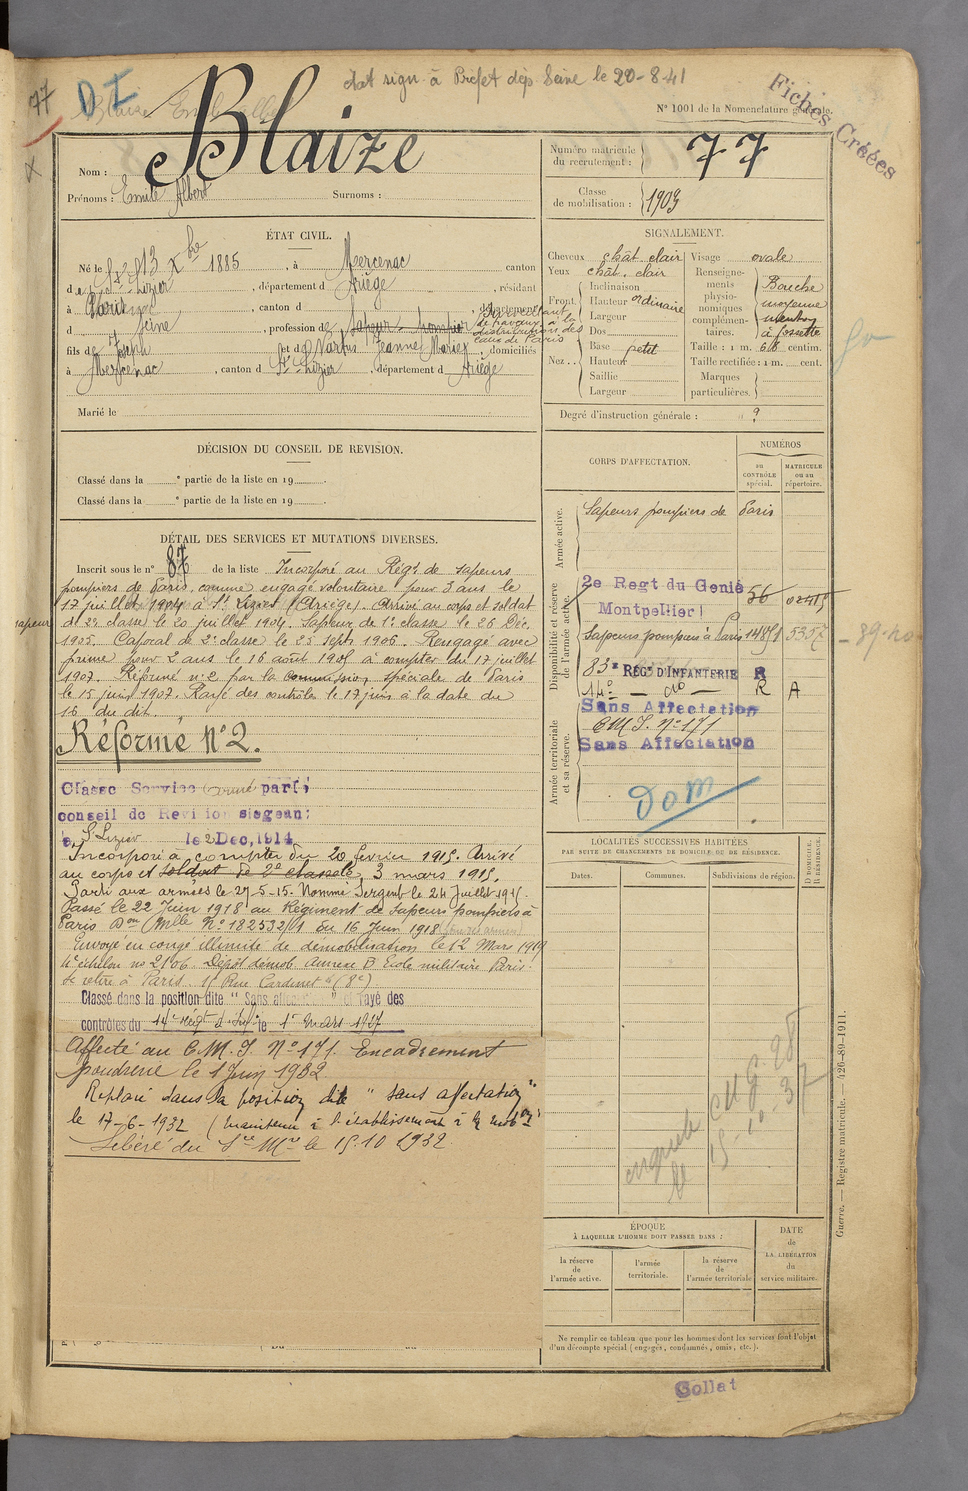 77
D I
état sign. à Préfet dép Seine le 20-8-41
Fiches Créées
N° 1001 de la Nomenclature générale.
Nom : Blaize
Prénoms : Emile Albert Surnoms :
Numéro matricule du recrutement : 77
Classe de mobilisation : 1903
ÉTAT CIVIL.
Né le 13 Xbre 1885, à Mercenac canton
de St Lizier, département d Ariège, résidant
à Paris, canton d , département
d Seine, profession de sapeur-pompier
Surveillant de travaux à la distribution des eaux de Paris
fils de Joseph et de Vartus Jeanne Marie, domiciliés
à Mercenac, canton d St Lizier, département d Ariège
Marié le
SIGNALEMENT.
Cheveux chât clair Visage ovale
Yeux chât. clair
Front Inclinaison
Hauteur ordinaire
Largeur
Nez Dos
Base petit
Hauteur
Saillie
Largeur
Renseignements physionomiques complémentaires.
Bouche moyenne menton à fossette
Taille : 1 m. 68 centim.
Taille rectifiée : 1 m. cent.
Marques particulières.
Degré d'instruction générale : ?
DÉCISION DU CONSEIL DE REVISION.
Classé dans la ° partie de la liste en 19 .
Classé dans la ° partie de la liste en 19 .
DÉTAIL DES SERVICES ET MUTATIONS DIVERSES.
Inscrit sous le n° 87 de la liste Incorporé au Régt. de sapeurs
pompiers de Paris, comme engagé volontaire pour 3 ans le
17 juillet 1904 à St Lizier (Ariège). Arrivé au corps et soldat
sapeur
de 2e classe le 20 juillet 1904. Sapeur de 1e classe le 26 Déc.
1905. Caporal de 2e classe le 25 Septe 1906. Rengagé avec
prime pour 2 ans le 16 août 1905 à compter du 17 juillet
1907. Réformé n° 2 par la Commission spéciale de Paris
le 15 juin 1907. Rayé des contrôles le 17 juin à la date du
16 du dit.
Réformé N° 2.
Classé Service armé par le
conseil de Revision siégeant
à St Lizier le 2 Dec. 1914
Incorporé à compter du 20 février 1915. Arrivé
au corps et soldat de 2e classe le 3 mars 1915.
Parti aux armées le 27-5-15. Nommé Sergent le 24 Juillet 1915.
Passé le 22 Juin 1918 au Régiment de Sapeurs pompiers à
Paris Don Mlle N° 182532/1 du 16 Juin 1918
Envoyé en congé illimité de démobilisation le 12 Mars 1919
4e échelon no 2106. Dépôt démob. Annexe B Ecole militaire Paris.
Se retire à Paris. Rue Cardinet (8e)
Classé dans la position dite "Sans affectation" et rayé des
contrôles du 14e Régt d'Infie le 1er Mars 1927
Affecté au C.M.I. N° 171. Encadrement
poudrerie le 1 Juin 1932
Replacé dans la position dite "sans affectation"
le 17-6-1932 (maintenu à l'établissement à la mobon)
Libéré du Sce Mre le 15.10.1932.
CORPS D'AFFECTATION.
NUMÉROS
AU CONTRÔLE spécial.
MATRICULE ou au répertoire.
Armée active.
Sapeurs pompiers de Paris
Disponibilité et réserve de l'armée active.
2e Regt du Génie
Montpellier
56
Sapeurs pompiers à Paris 14851 5357
83e RÉG. D'INFANTERIE R
14e — do — R A
Sans Affectation
Armée territoriale et sa réserve.
C.M.I. N° 171
Sans Affectation
DOM
LOCALITÉS SUCCESSIVES HABITÉES
PAR SUITE DE CHANGEMENTS DE DOMICILE OU DE RÉSIDENCE.
Dates. Communes. Subdivisions de région. D DOMICILE. R RÉSIDENCE.
le 15-10 37
ÉPOQUE
À LAQUELLE L'HOMME DOIT PASSER DANS :
la réserve de l'armée active.
l'armée territoriale.
la réserve de l'armée territoriale
DATE de LA LIBÉRATION du service militaire.
Ne remplir ce tableau que pour les hommes dont les services font l'objet
d'un décompte spécial (engagés, condamnés, omis, etc.).
Guerre. — Registre matricule. — 426-89-1911.
Collat